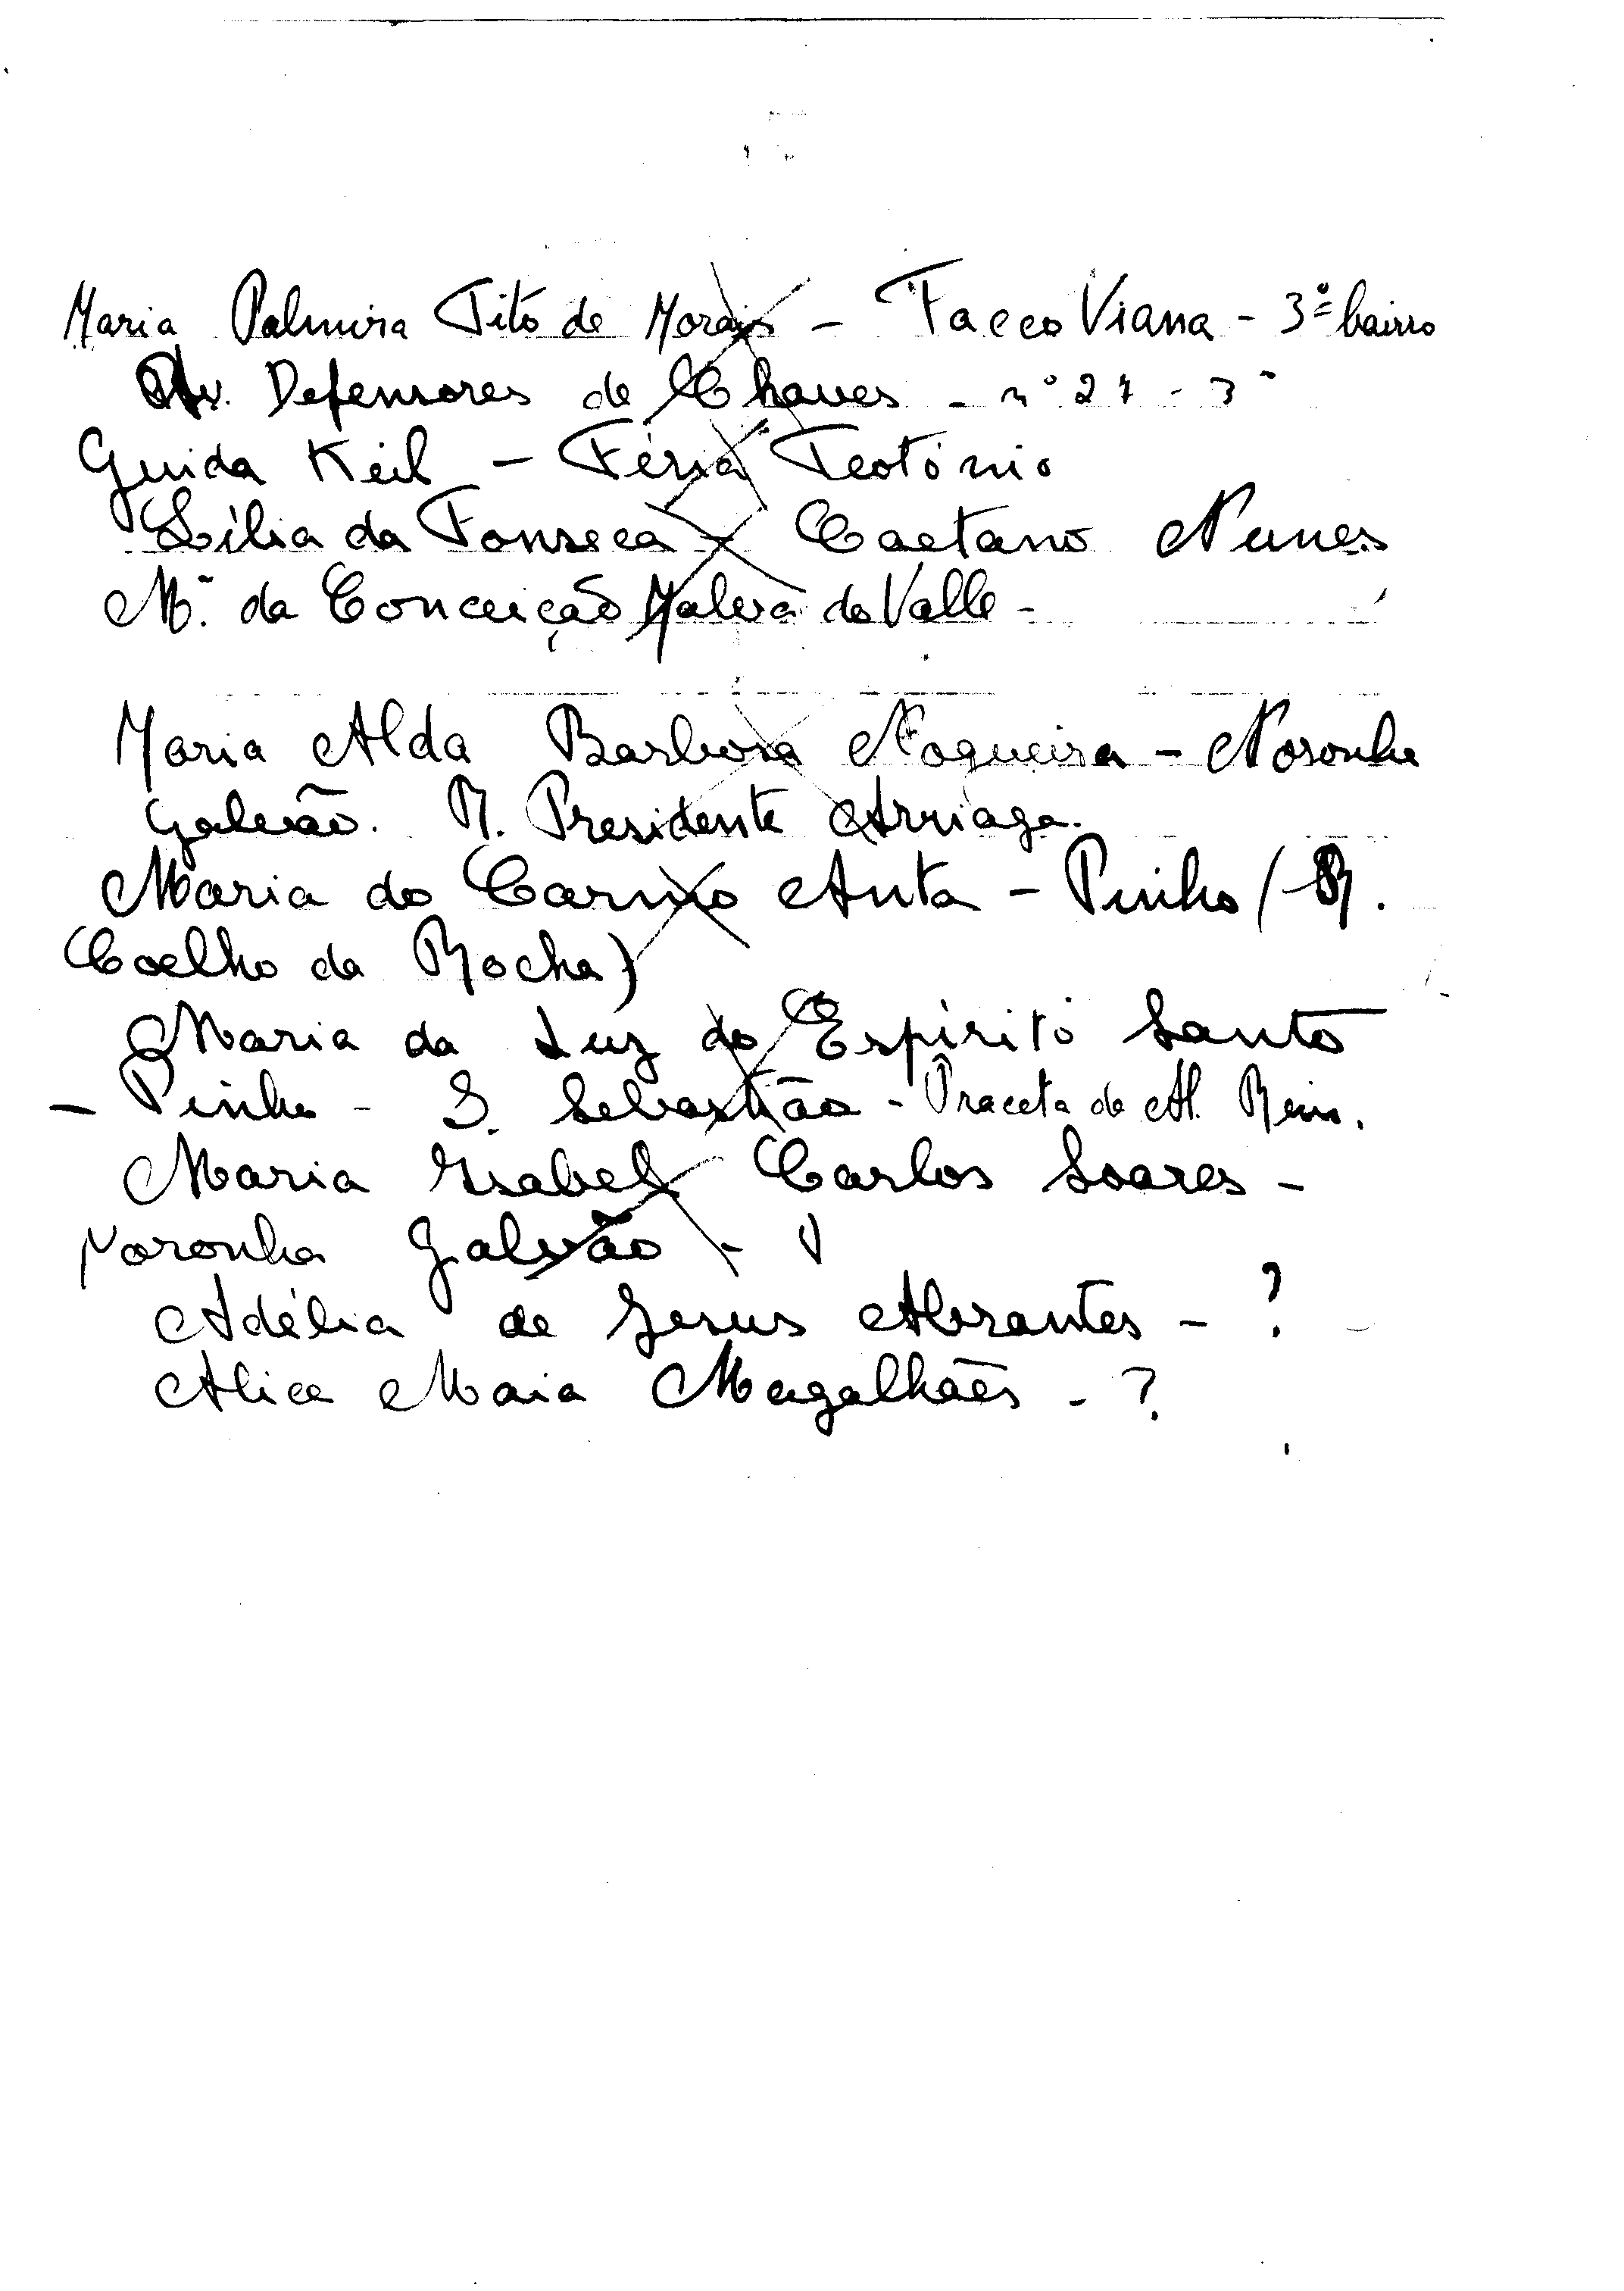 Maria Palmira Tito de Morais - Facco Viana - 3º bairro
Av. Defensores de Chaves - nº 27 - 3º
Guida Keil - Féria Teotónio
Lília da Fonseca - Caetano Nunes
Mª. da Conceição do Valle -
Maria Alda Barbosa Nogueira - Noronha
Galvão. R. Presidente Arriaga.
Maria do Carmo Anta - Pinho (R.
Coelho da Rocha)
Maria da Luz do Espírito Santo
- Pinho - S. Sebastião - Praceta da Al.
Maria Isabel Carlos Soares -
Noronha Galvão -
Adélia de Jesus Abrantes - ?
Alice Maia Magalhães - ?